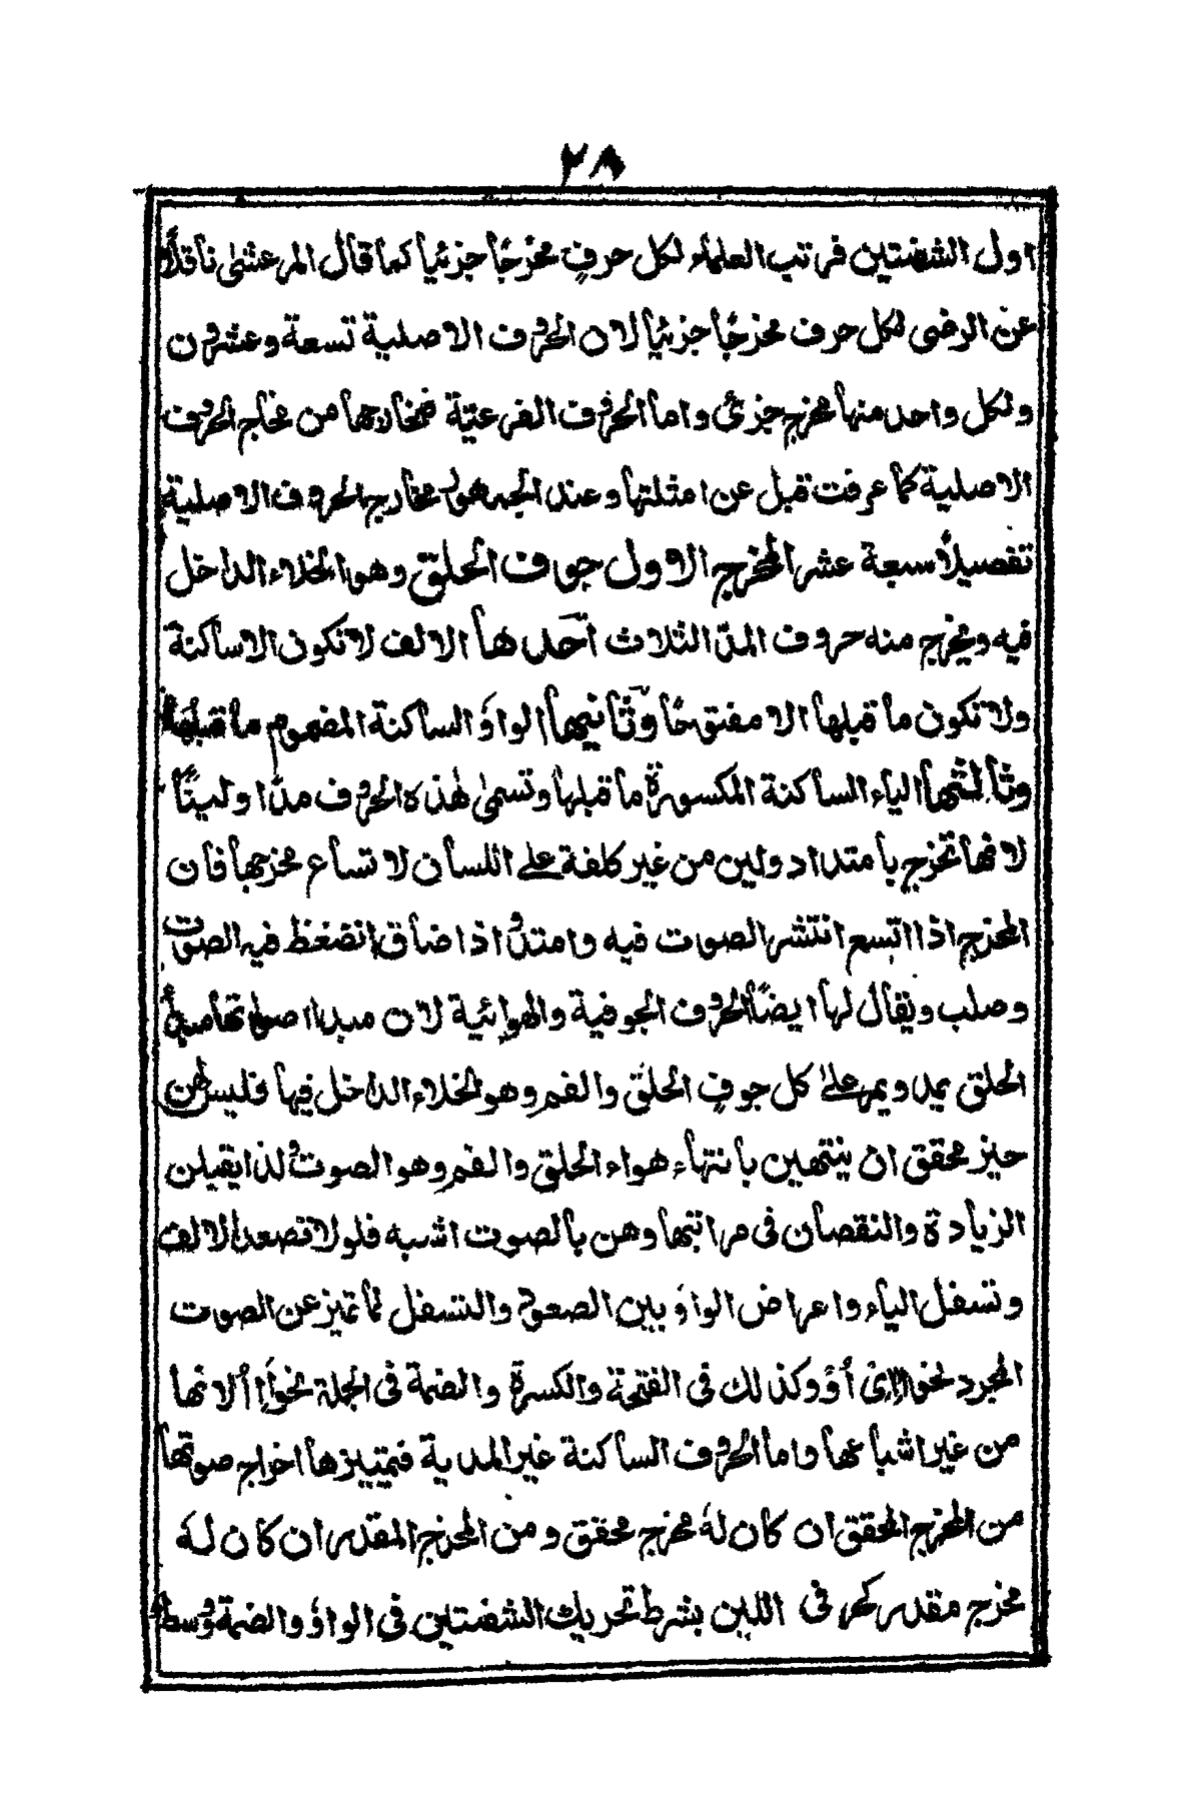 ٢٨
اول الشفتين فرتب العلماء لكل حرفٍ مخرجًا جزئيا كما قال المرعشى ناقلًا
عن الرضى لكل حرف مخرجًا جزئيا لان الحروف الاصلية تسعة وعشرون
ولكل واحد منها مخرج جزئى واما الحروف الفرعيّة فمخارجها من مخارج الحروف
الاصلية كما عرفت قبل عن امثلتها وعند الجمهور مخارج الحروف الاصلية
تفصيلًا سبعة عشر المخرج الاول جوف الحلق وهو الخلاء الداخل
فيه ويخرج منه حروف المدّ الثلاث احدها الالف لا تكون الا ساكنة
ولا تكون ما قبلها الا مفتوحًا وثانيها الواو الساكنة المضموم ما قبلها
وثالثها الياء الساكنة المكسورة ما قبلها وتسمى لهذه الحروف مدّا ولينًا
لانها تخرج بامتداد ولين من غير كلفة على اللسان لاتساع مخرجها فان
المخرج اذا اتسع انتشر الصوت فيه وامتدّ واذا ضاق انضغط فيه الصوت
وصلب ويقال لها ايضًا الحروف الجوفية والهوائية لان مبدا اصواتها مبدأ
الحلق يمد ويمر على كل جوفٍ الحلق والفم وهو الخلاء الداخل فيها فليس لهن
حيز محقق ان ينتهين بانتهاء هواء الحلق والفم وهو الصوت ولذا يقبلن
الزيادة والنقصان فى مراتبها وهن بالصوت اشبه فلولا تصعد الالف
وتسفل الياء واعراض الواو بين الصعود والتسفل لما تميز عن الصوت
المجرد نحو اا اى أؤ وكذلك فى الفتحة والكسرة والضمة فى الجملة نحو أ إ أ لانها
من غير اشباعها واما الحروف الساكنة غير المدية فتمييزها اخراج صوتها
من المخرج المحقق ان كان له مخرج محقق ومن المخرج المقدر ان كان له
مخرج مقدر كحر فى اللين بشرط تحريك الشفتين فى الواو والضمة وسط